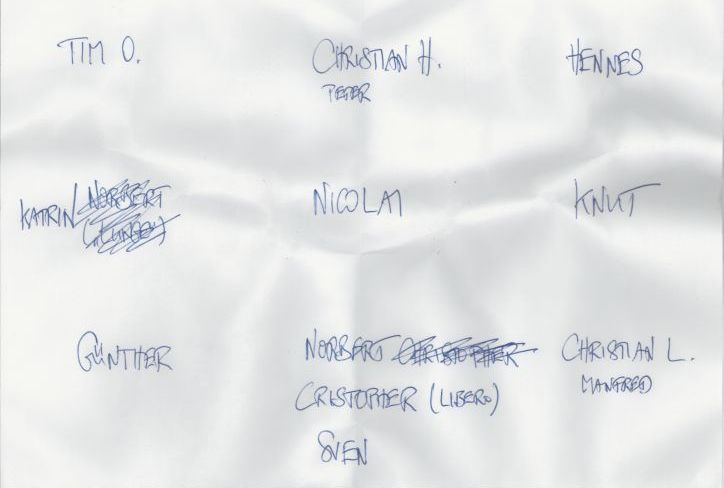 TIM O. CHRISTIAN H. HENNES
PETER
KATRIN NORBERT NICOLAI KNUT
GÜNTHER NORBERT CHRISTOPHER CHRISTIAN L.
MANFRED
CRISTOPHER (LIBERO)
SVEN